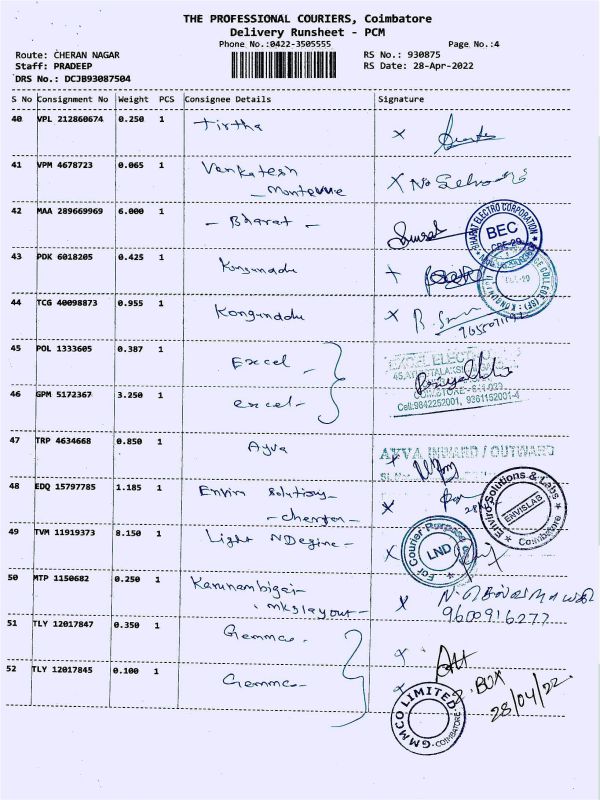 THE PROFESSIONAL COURIERS, Coimbatore
Delivery Runsheet - PCM
Phone No.:0422-3505555 Page No.:4
Route: CHERAN NAGAR RS No.: 930875
Staff: PRADEEP RS Date: 28-Apr-2022
DRS No.: DCJB93087504
S No Consignment No Weight PCS Consignee Details Signature
40 VPL 212860674 0.250 1 Tirtha X
41 VPM 4678723 0.065 1 Venkatesh X No
- Montevue
42 MAA 289669969 6.000 1 - Bharat -
BHARAT ELECTRO CORPORATION
BEC
CBE-29
43 PDK 6018205 0.425 1 Kongunadu
44 TCG 40098873 0.955 1 Kongunadu X
45 POL 1333605 0.387 1 Excel
EXCEL
46 GPM 5172367 3.250 1 excel-
Cell:9842252001, 9361152001-4
47 TRP 4634668 0.850 1 Ayva X
AYVA INWARD / OUTWARD
48 EDQ 15797785 1.185 1 Enviro Solutions - X
- cheran -
Enviro Solutions & Labs
ENVISLAB
Coimbatore
49 TVM 11919373 8.150 1 Light N Degine -
For Courier Purpose
LND
50 MTP 1150682 0.250 1 Karunambigai X
- mkslayout -
9600916277
51 TLY 12017847 0.350 1 Gemmco - x
52 TLY 12017845 0.100 1 Gemmco - x
BOX
28/04/22
GMMCO LIMITED
COIMBATORE